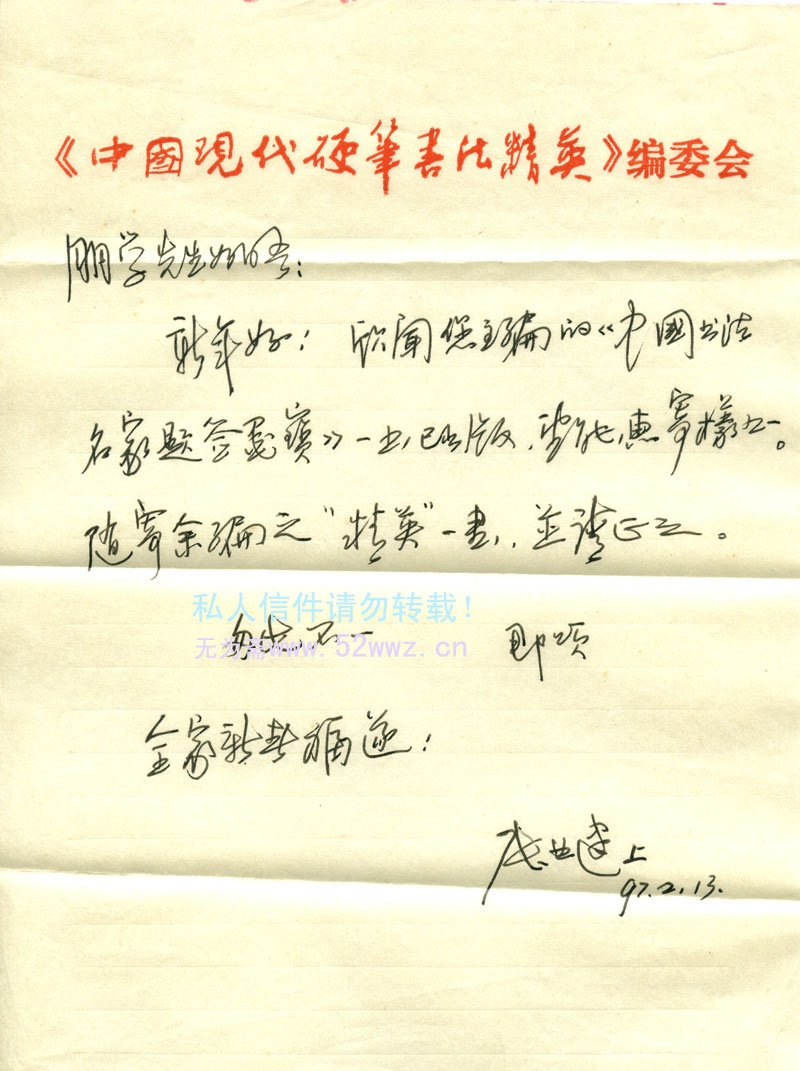 《中國現代硬筆书法精英》编委会
朋学先生如晤：
新年好！欣闻您主编的《中國书法
名家题签墨寶》一书已出版，望能惠寄樣书一。
随寄余编之“精英”一書，並请正之。
私人信件请勿转载！
匆匆不一 即颂
无为斋www.52wwz.cn
全家新春福邃！
上
97.2.13.